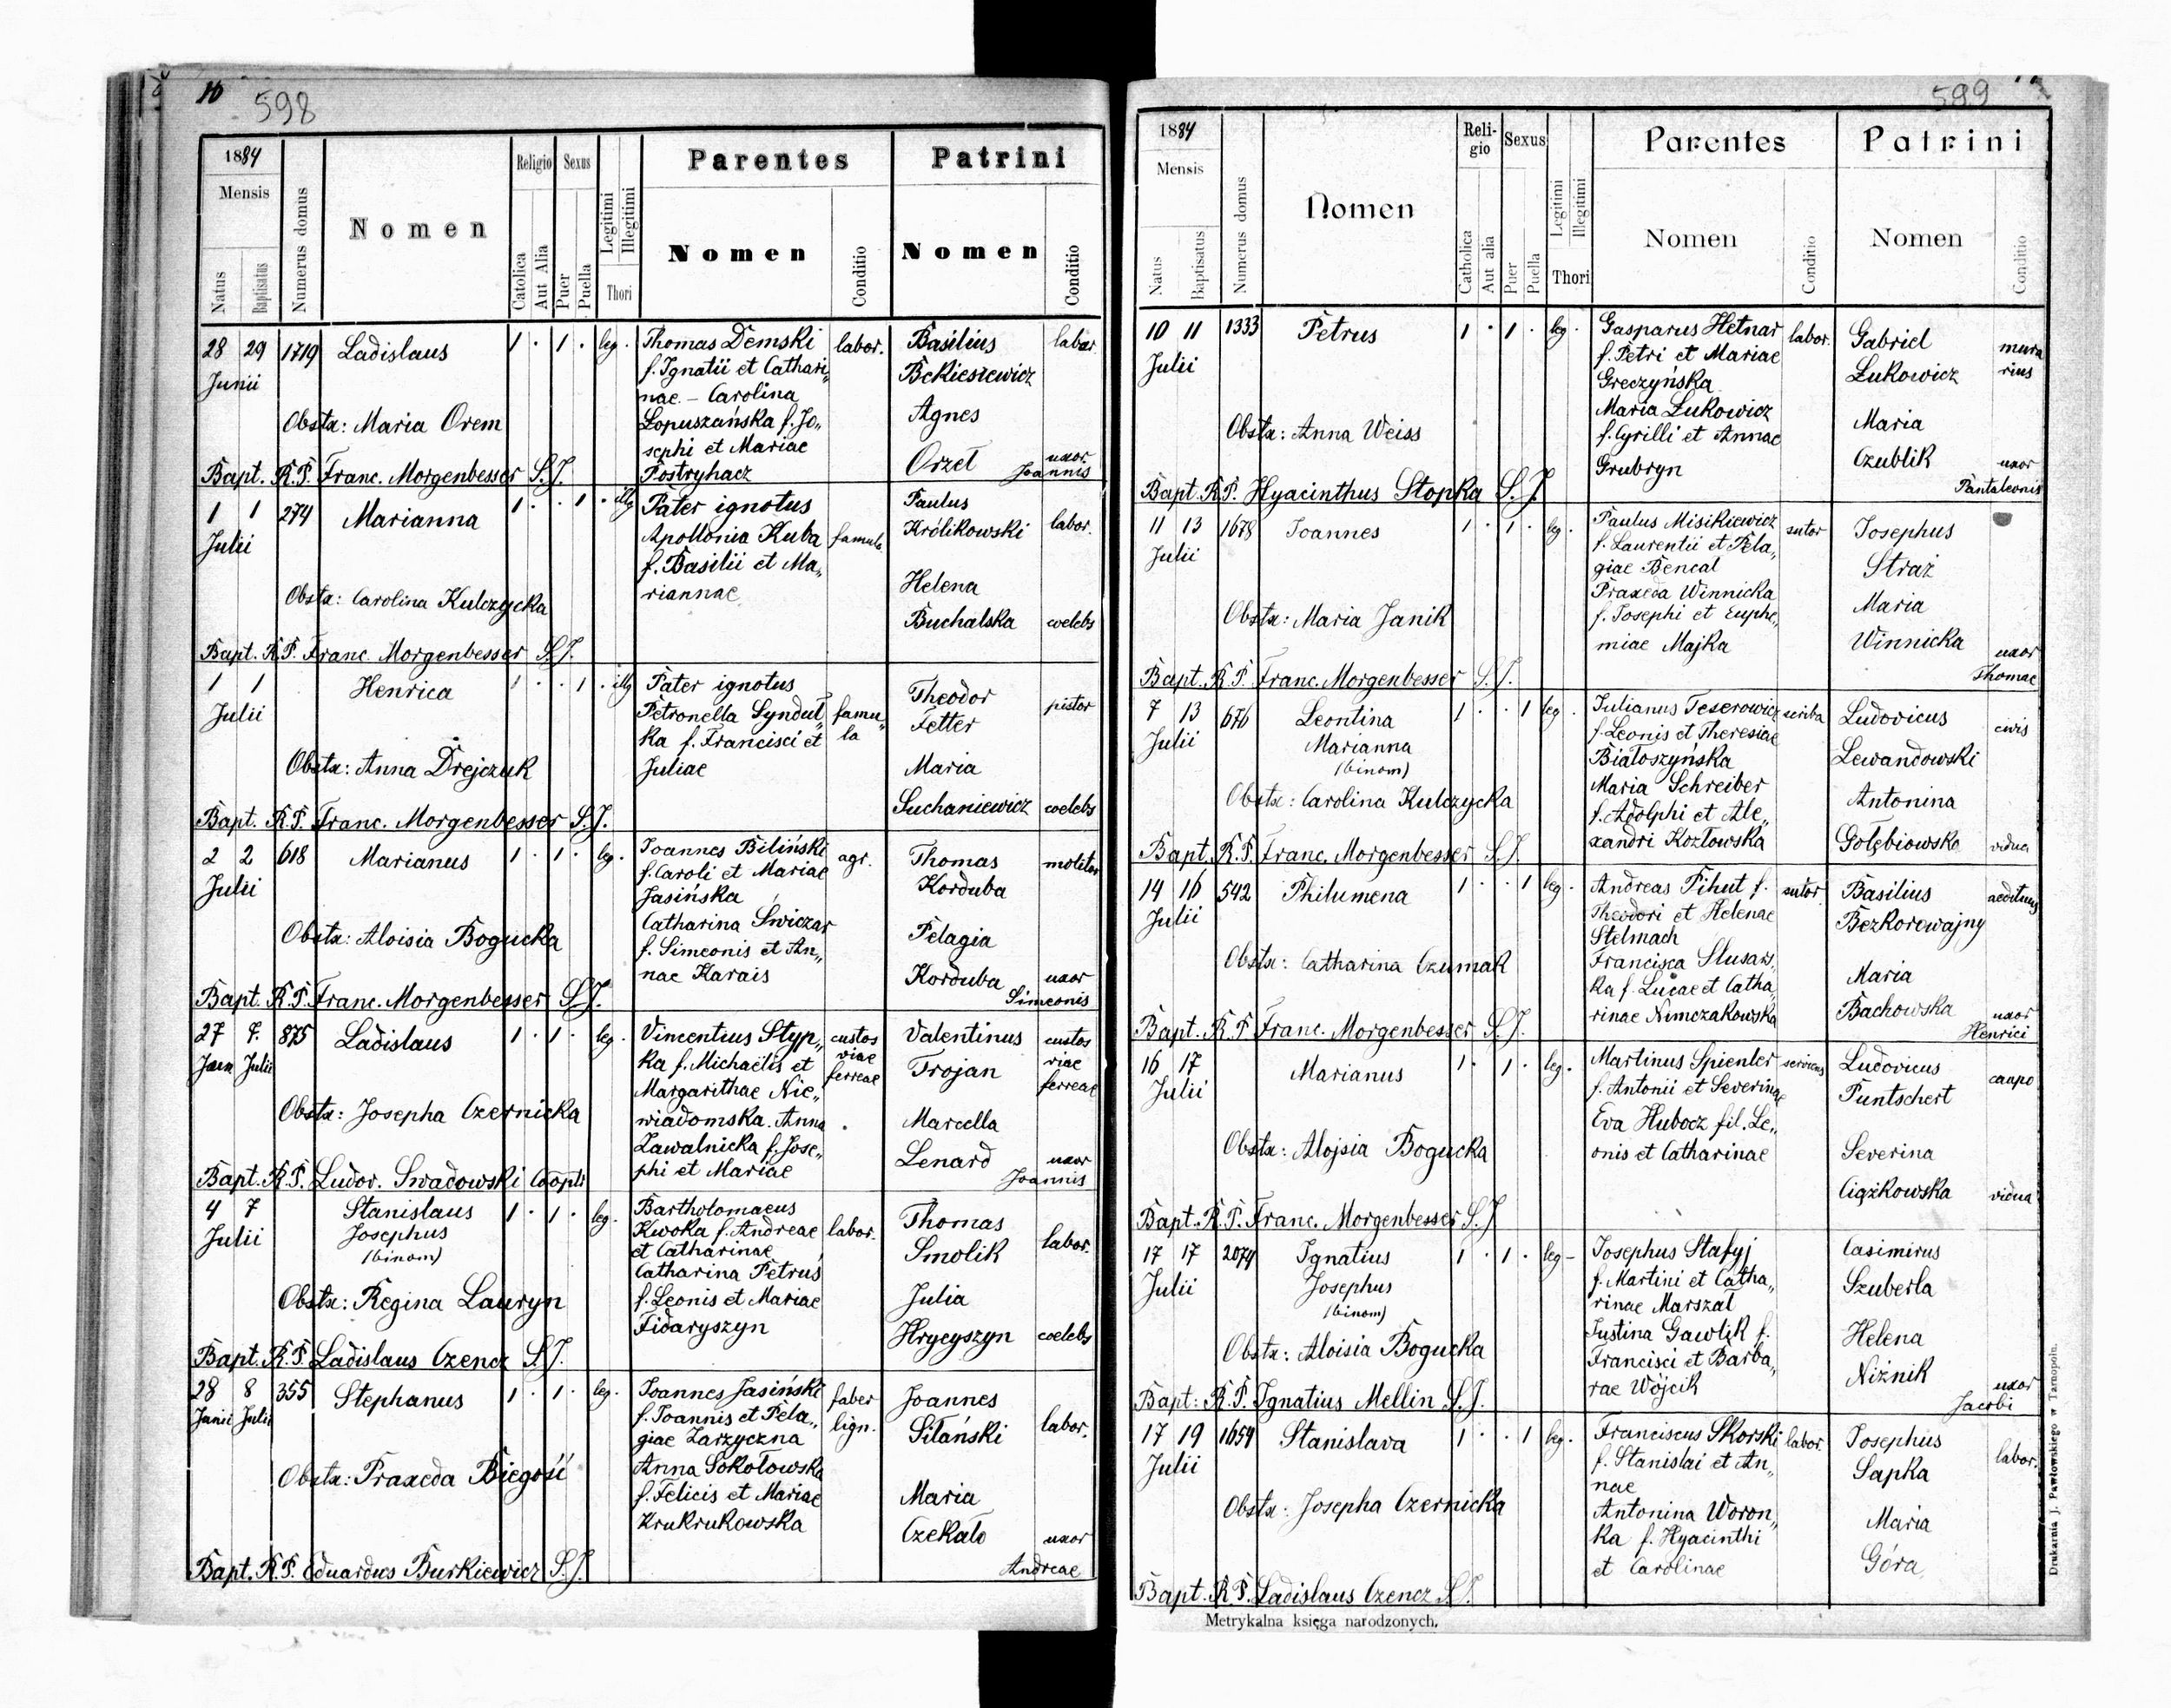 10 598
1884
Mensis
Natus
Baptisatus
Numerus domus
Nomen
Religio
Catolica
Aut Alia
Sexus
Puer
Puella
Legitimi
Illegitimi
Thori
Parentes
Nomen
Conditio
Patrini
Nomen
Conditio
28 29 1719 Ladislaus 1 · 1 · leg.
Junii
Thomas Demski
f. Ignatii et Cathari„
nae – Carolina
Łopuszańska f. Jo„
sephi et Mariae
Postryhacz
labor.
Basilius labor.
Bekiesiewicz
Agnes
Orzeł uxor
Joannis
Obstx: Maria Orem
Bapt. R.P. Franc. Morgenbesser S.J.
1 1 274 Marianna 1 · · 1 · illg
Julii
Pater ignotus
Apollonia Kuba famula
f. Basilii et Ma„
riannae
Paulus
Królikowski labor.
Helena
Buchalska coelebs
Obstx: Carolina Kulczycka
Bapt. R.P. Franc. Morgenbesser S.J.
1 1 Henrica 1 · · 1 · illg
Julii
Pater ignotus
Petronella Syndul„
ka f. Francisci et
Juliae
famu„
la
Theodor pistor
Fetter
Maria
Suchaniewicz coelebs
Obstx: Anna Drejczuk
Bapt. R.P. Franc. Morgenbesser S.J.
2 2 618 Marianus 1 · 1 · leg.
Julii
Joannes Biliński agr.
f. Caroli et Mariae
Jasińska
Catharina Świczar
f. Simeonis et An„
nae Karais
Thomas molitor
Korduba
Pelagia
Korduba uxor
Simeonis
Obstx: Aloisia Bogucka
Bapt. R.P. Franc. Morgenbesser S.J.
27 7. 875 Ladislaus 1 · 1 · leg.
Julii
Vincentius Styp„
ka f. Michaelis et
Margarithae Nie„
wiadomska. Anna
Zawalnicka f. Jose„
phi et Mariae
custos
viae
ferreae
Valentinus custos
Trojan viae
ferreae
Marcella
Lenard uxor
Joannis
Obstx: Josepha Czernicka
Bapt. R.P. Ludov. Swadowski Coopti
4 7 Stanislaus 1 · 1 · leg.
Julii Josephus
(binom)
Bartholomaeus
Kwoka f. Andreae labor.
et Catharinae
Catharina Petrus
f. Leonis et Mariae
Fidaryszyn
Thomas
Smolik labor.
Julia
Hrycyszyn coelebs
Obstx: Regina Lauryn
Bapt. R.P. Ladislaus Czencz S.J.
28 8 355 Stephanus 1 · 1 · leg.
Junii Julii
Joannes Jasiński faber
f. Joannis et Pela„ lign.
giae Zarzyczna
Anna Sokołowska
f. Felicis et Mariae
Krukrukowska
Joannes
Silański labor.
Maria
Czekało uxor
Andreae
Obstx: Praxeda Biegość
Bapt. R.P. Eduardus Burkiewicz S.J.
599
1884
Mensis
Natus
Baptisatus
Numerus domus
Nomen
Religio
Catholica
Aut alia
Sexus
Puer
Puella
Legitimi
Illegitimi
Thori
Parentes
Nomen
Conditio
Patrini
Nomen
Conditio
10 11 1333 Petrus 1 · 1 · leg.
Julii
Gasparus Hetnar labor.
f. Petri et Mariae
Greczyńska
Maria Łukowicz
f. Cyrilli et Annae
Grubryn
Gabriel mura
Łukowicz rius
Maria
Czublik uxor
Pantaleonis
Obstx: Anna Weiss
Bapt. R.P. Hyacinthus Stopka S.J.
11 13 1678 Joannes 1 · 1 · leg.
Julii
Paulus Misikiewicz sutor
f. Laurentii et Pela„
giae Bencal
Praxeda Winnicka
f. Josephi et Euphe„
miae Majka
Josephus
Straż
Maria
Winnicka uxor
Thomae
Obstx: Maria Janik
Bapt. R.P. Franc. Morgenbesser S.J.
7 13 676 Leontina 1 · · 1 leg.
Julii Marianna
(binom)
Julianus Teserowicz scriba
f. Leonis et Theresiae
Białoszyńska
Maria Schreiber
f. Adolphi et Ale„
xandri Kozłowska
Ludovicus civis
Lewandowski
Antonina
Gołębiowska vidua
Obstx: Carolina Kulczycka
Bapt. R.P. Franc. Morgenbesser S.J.
14 16 542 Philumena 1 · · 1 leg.
Julii
Andreas Fihut f. sutor
Theodori et Helenae
Stelmach
Francisca Slusars„
ka f. Lucae et Catha„
rinae Nimczakowska
Basilius aedituus
Bezkorowajny
Maria
Bachowska uxor
Henrici
Obstx: Catharina Czumak
Bapt. R.P. Franc. Morgenbesser S.J.
16 17 Marianus 1 · 1 · leg.
Julii
Martinus Spienler servus
f. Antonii et Severinae
Eva Hubocz fil. Le„
onis et Catharinae
Ludovicus caupo
Puntschert
Severina
Ciążkowska vidua
Obstx: Alojsia Bogucka
Bapt. R.P. Franc. Morgenbesser S.J.
17 17 2074 Ignatius 1 · 1 · leg –
Julii Josephus
(binom)
Josephus Stafyj
f. Martini et Catha„
rinae Marszał
Justina Gawlik f.
Francisci et Barba„
rae Wójcik
Casimirus
Szuberla
Helena
Niżnik uxor
Jacobi
Obstx: Aloisia Bogucka
Bapt: R.P. Ignatius Mellin S.J.
17 19 1654 Stanislava 1 · · 1 leg.
Julii
Franciscus Skorski labor.
f. Stanislai et An„
nae
Antonina Woron„
ka f. Hyacinthi
et Carolinae
Josephus
Sapka labor.
Maria
Góra
Obstx: Josepha Czernicka
Bapt. R.P. Ladislaus Czencz S.J.
Metrykalna księga narodzonych.
Drukarnia J. Pawłowskiego w Tarnopolu.